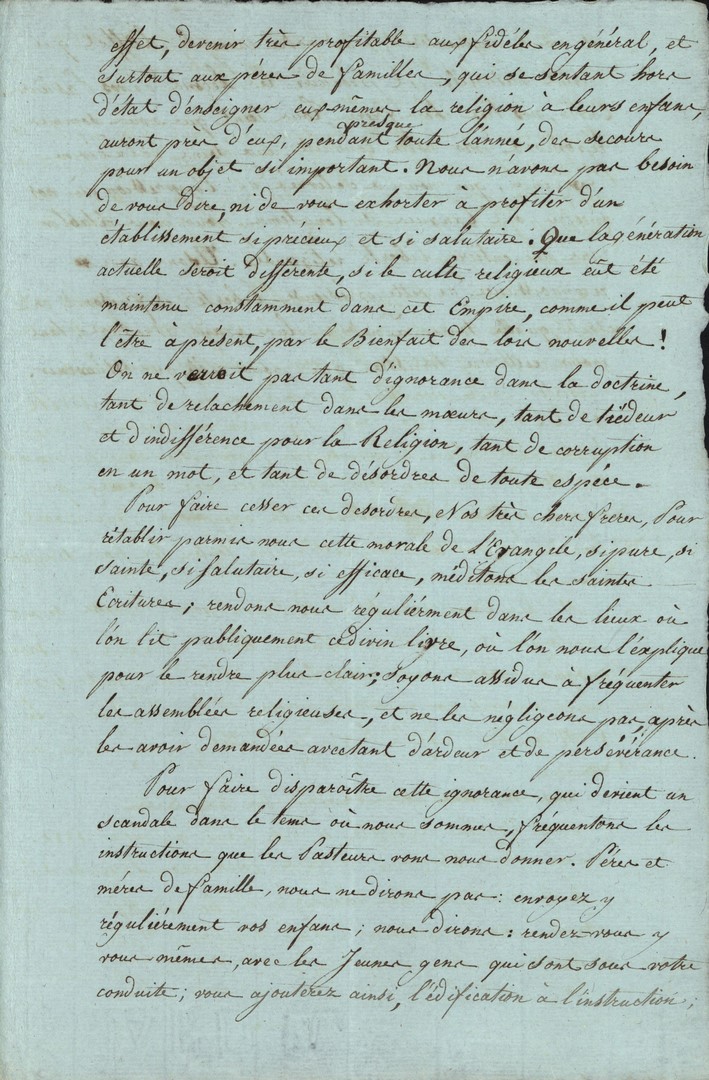 effet, devenir très profitable aux fidéles en général, et
surtout aux péres de familles, qui se sentant hors
d'état d'énseigner eux-mêmes la religion à leurs enfans,
auront près d'eux, pendant presque toute l'année, des secours
pour un objet si important. Nous n'avons pas besoin
de vous dire, ni de vous exhorter à profiter d'un
établissement si précieux et si salutaire. Que la génération
actuelle seroit différente, si le culte religieux eût été
maintenu constamment dans cet Empire, comme il peut
l'être à présent, par le Bienfait des lois nouvelles!
On ne verroit pas tant d'ignorance dans la doctrine,
tant de relachement dans les mœurs, tant de tiédeur
et d'indifférence pour la Religion, tant de corruption
en un mot, et tant de désordres de toute espéce.
Pour faire cesser ces desordres, Nos très chers freres, Pour
rétablir parmis nous cette morale de L'Evangile, si pure, si
sainte, si salutaire, si efficace, méditons les saintes
Ecritures; rendons nous réguliérment dans les lieux où
l'on lit publiquement ce divin livre, où l'on nous l'éxplique
pour le rendre plus clair; soyons assidus à fréquenter
les assemblées religieuses, et ne les négligeons pas, après
les avoir demandées avec tant d'ardeur et de persévérance.
Pour faire disparoître cette ignorance, qui devient un
scandale dans le tems où nous sommes, fréquentons les
instructions que les Pasteurs vons nous donner. Péres et
méres de famille, nous ne dirons pas: envoyez y
réguliérement vos enfans; nous dirons: rendez-vous y
vous-mêmes, avec les Jeunes gens qui sont sous votre
conduite; vous ajouterez ainsi, l'édification à l'instruction;